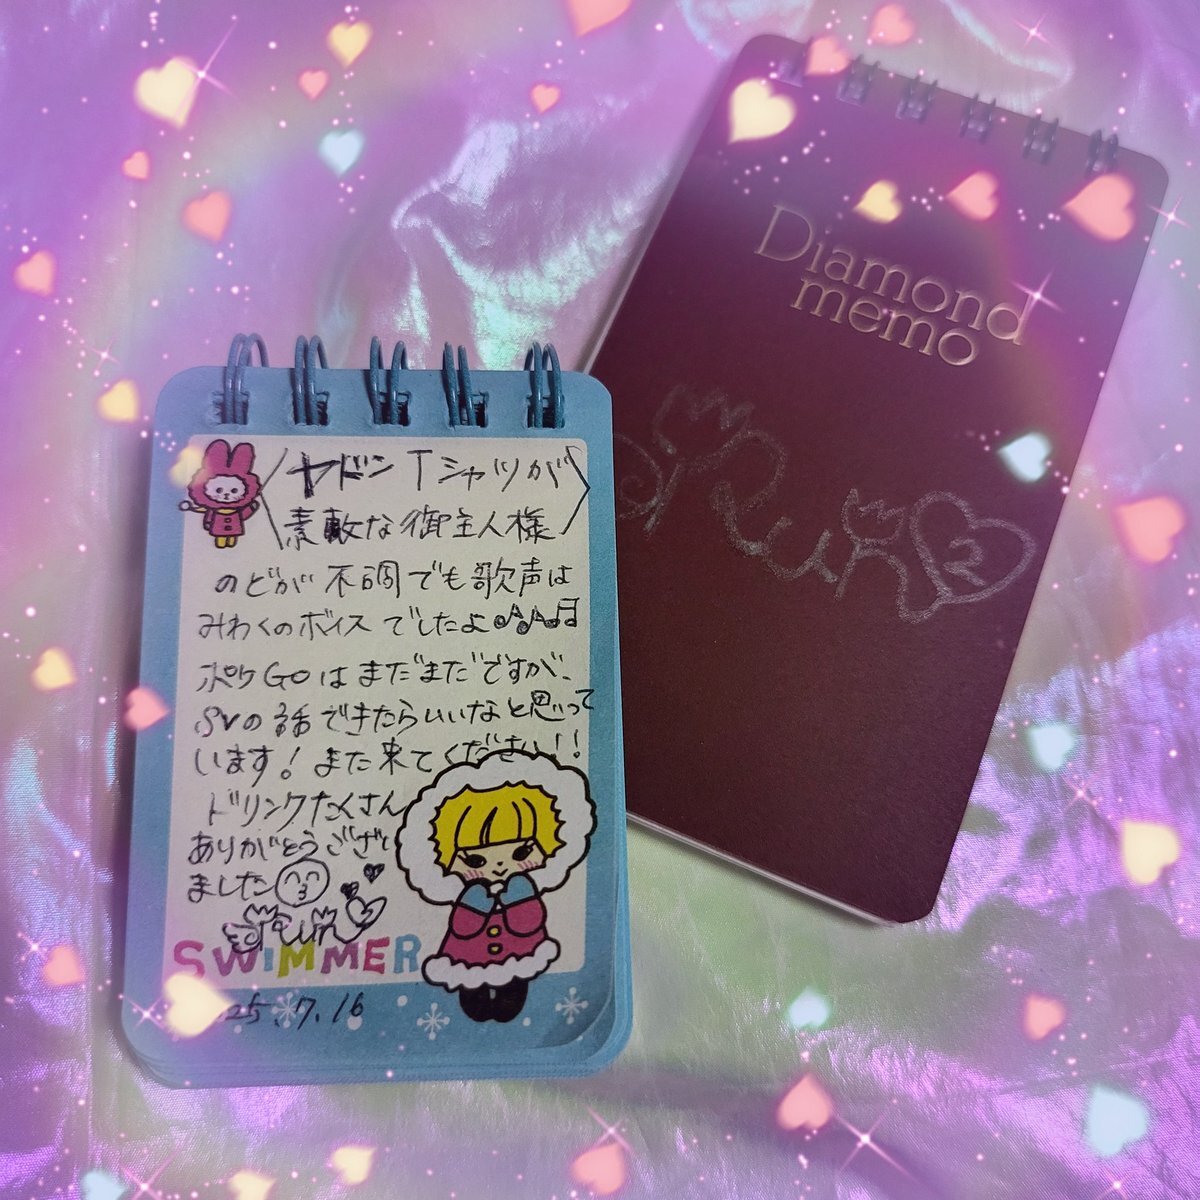 Diamond
memo
ヤドンTシャツが
素敵な御主人様
のどが不調でも歌声は
みわくのボイスでしたよ
ポケGOはまだまだですが、
SVの話できたらいいなと思って
います!また来てください!!
ドリンクたくさん
ありがとうござい
ました
SWIMMER
25.7.16